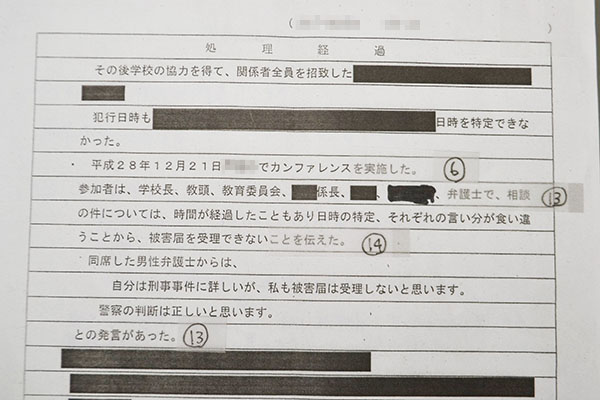 処理経過
その後学校の協力を得て、関係者全員を招致した
犯行日時も 日時を特定できな
かった。
・ 平成28年12月21日 でカンファレンスを実施した。 ⑥
参加者は、学校長、教頭、教育委員会、 係長、 、 、弁護士で、相談 ⑬
の件については、時間が経過したこともあり日時の特定、それぞれの言い分が食い違
うことから、被害届を受理できないことを伝えた。 ⑭
同席した男性弁護士からは、
自分は刑事事件に詳しいが、私も被害届は受理しないと思います。
警察の判断は正しいと思います。
との発言があった。 ⑬